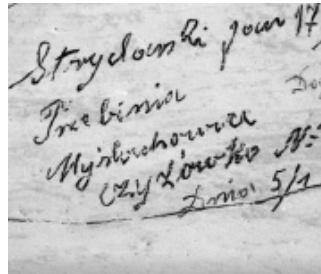 Strydowski Jan 17
Trzebinia
Myślachowice
Czyżówka N:
Dnia 5/1